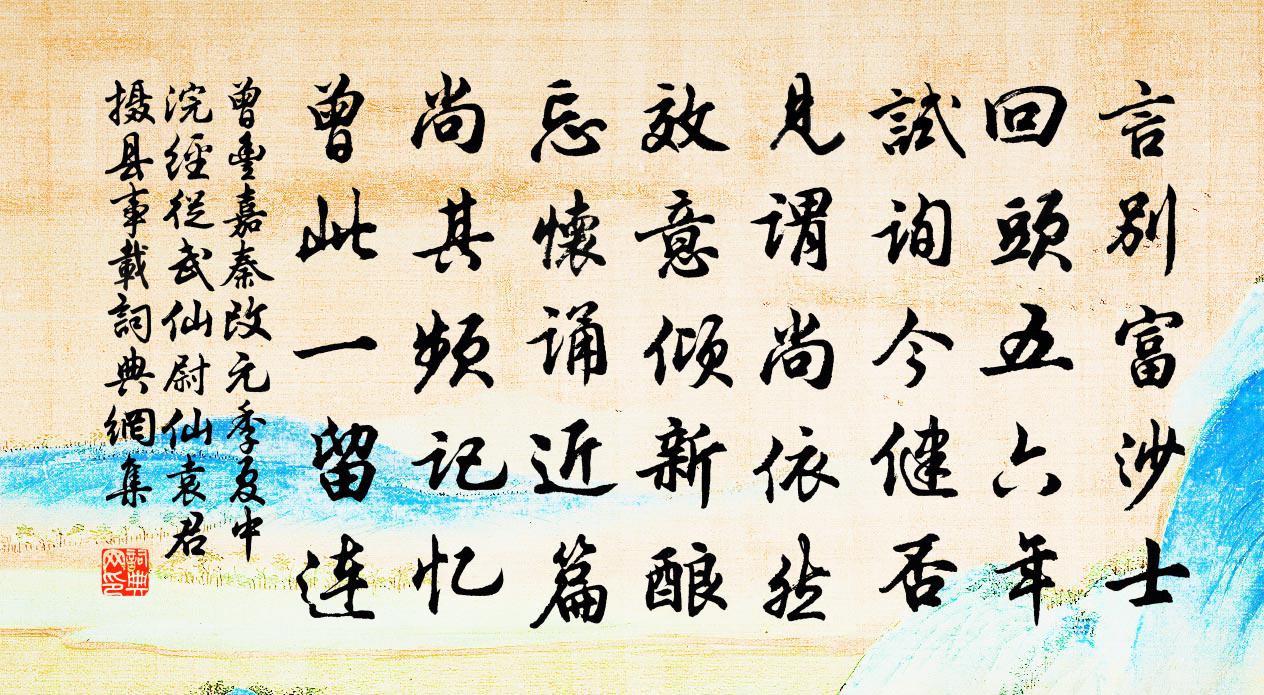 言別富沙士
回頭五六年
試詢今健否
見謂尚依然
效意傾新釀
忘懷誦近篇
尚其頻記忆
曾此一留連
曾豊嘉秦改元季夏中
浣經從武仙尉仙袁君
摄县事載詞典網集
詞典
网印